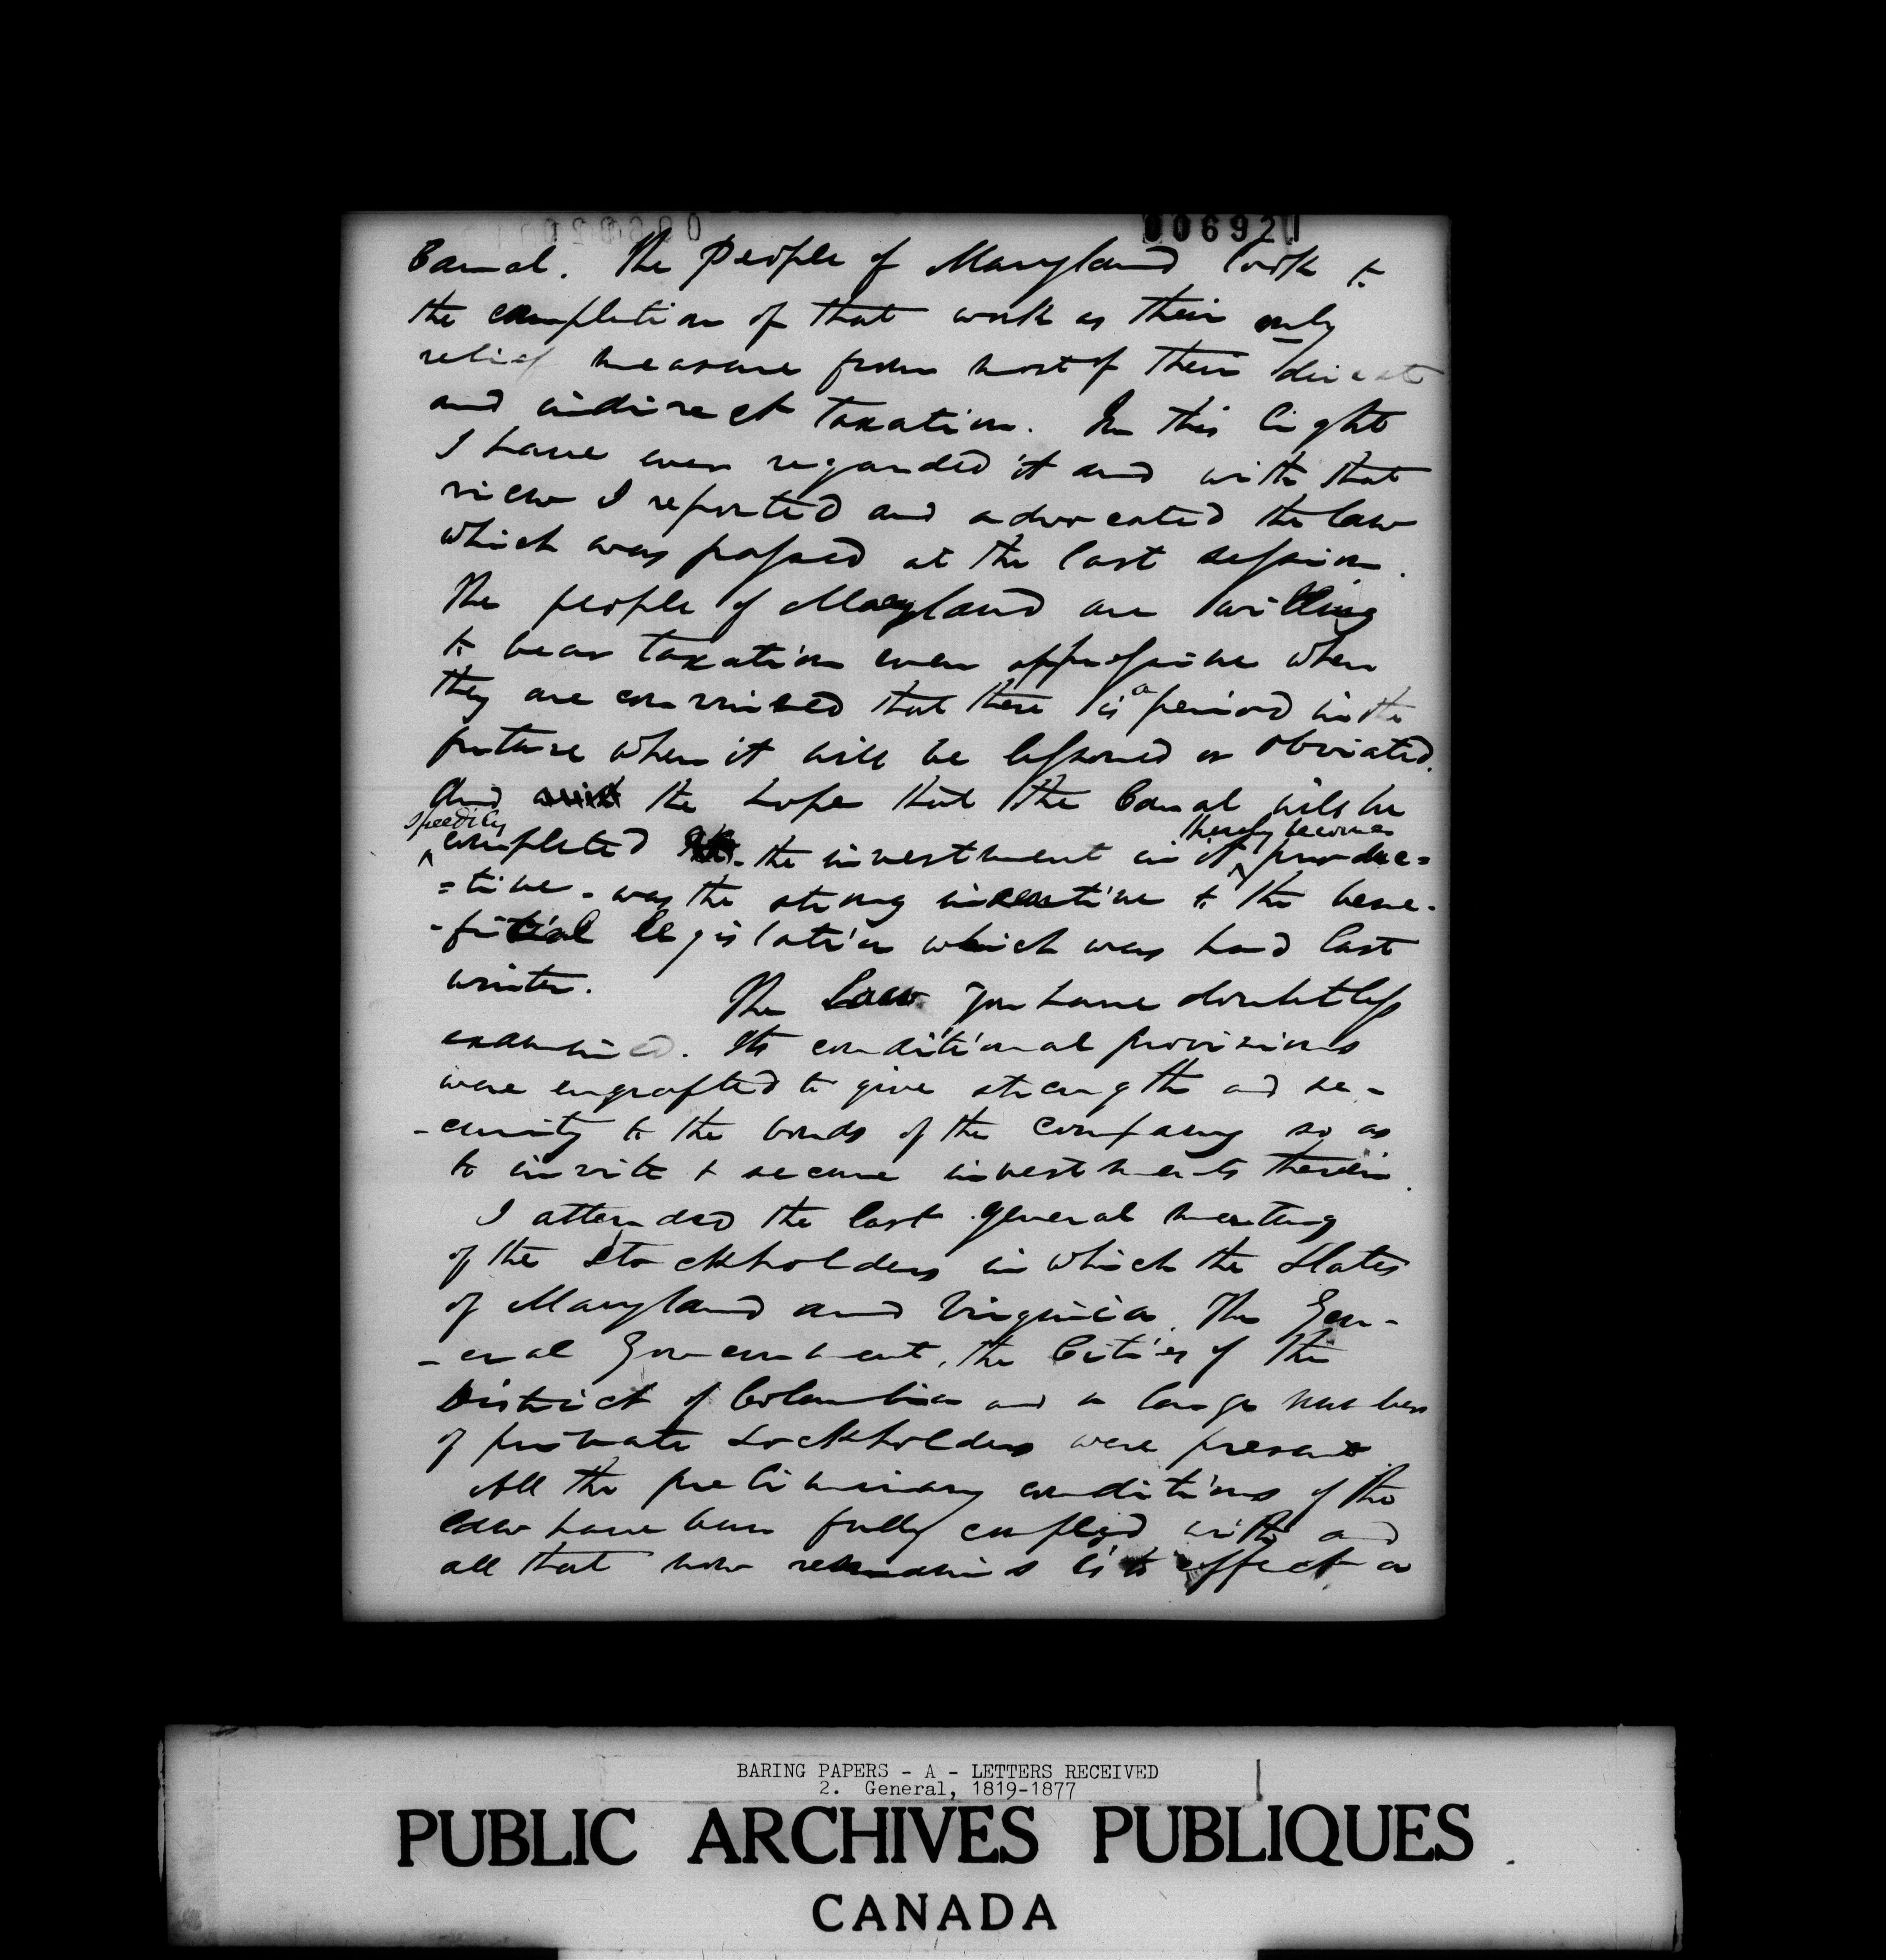 006921
Canal. The People of Maryland look to
the completion of that work as their only
relief measure from most of their direct
and indirect taxation. In this light
I have ever regarded it and with that
view I reported and advocated the law
which was passed at the last session.
The people of Maryland are willing
to bear taxation even oppressive when
they are convinced that there is a period in the
future when it will be lessoned or obviated.
And the hope that the Canal will be
speedily
thereby become
completed the investment in it produc=
=tive - was the strong incentive to the bene-
-ficial legislation which was had last
winter. The Law you have doubtless
examined. Its conditional provisions
were engrafted to give strength and se-
-curity to the bonds of the company so as
to invite & secure investments therein.
I attended the last general meeting
of the Stockholders in which the States
of Maryland and Virginia, The Gen-
-eral Government, the Cities of the
District of Columbia and a large number
of private stockholders were present.
All the preliminary conditions of the
law have been fully complied with and
all that now remains is to effect a
BARING PAPERS - A - LETTERS RECEIVED
2. General, 1819-1877
PUBLIC ARCHIVES PUBLIQUES
CANADA